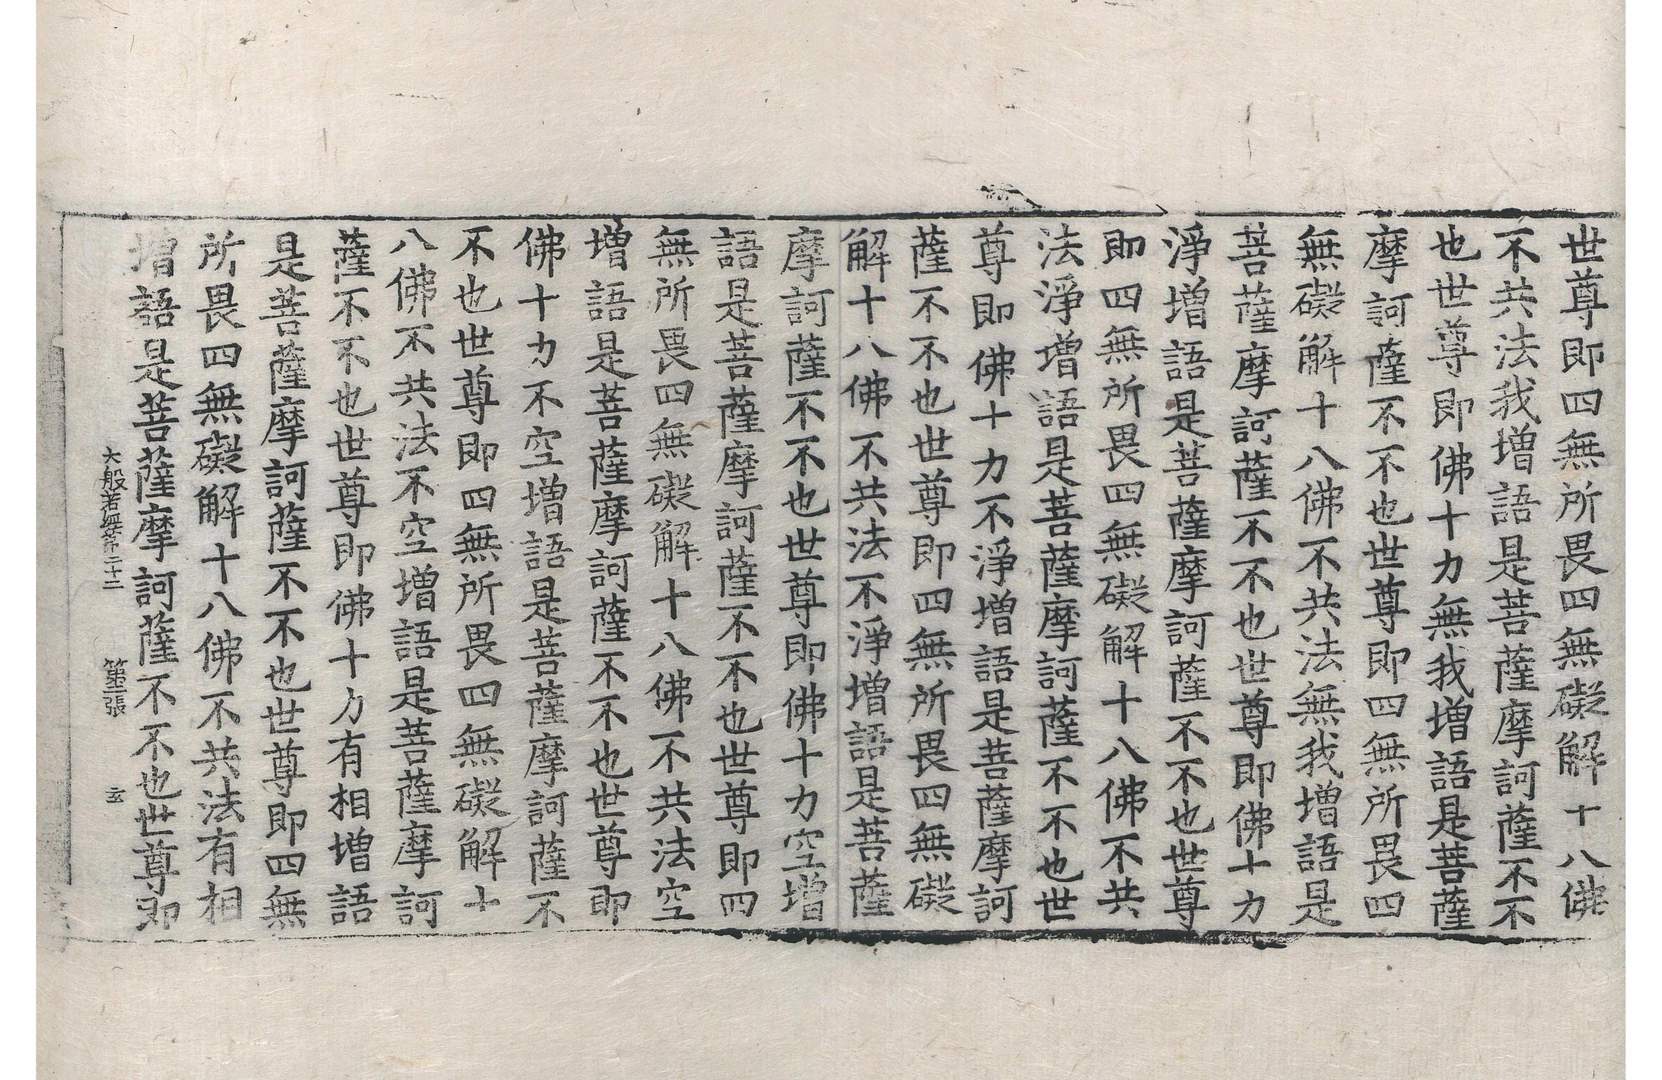 世尊即四無所畏四無礙解十八佛
不共法我增語是菩薩摩訶薩不不
也世尊即佛十力無我增語是菩薩
摩訶薩不不也世尊即四無所畏四
無礙解十八佛不共法無我增語是
菩薩摩訶薩不不也世尊即佛十力
淨增語是菩薩摩訶薩不不也世尊
即四無所畏四無礙解十八佛不共
法淨增語是菩薩摩訶薩不不也世
尊即佛十力不淨增語是菩薩摩訶
薩不不也世尊即四無所畏四無礙
解十八佛不共法不淨增語是菩薩
摩訶薩不不也世尊即佛十力空增
語是菩薩摩訶薩不不也世尊即四
無所畏四無礙解十八佛不共法空
增語是菩薩摩訶薩不不也世尊即
佛十力不空增語是菩薩摩訶薩不
不也世尊即四無所畏四無礙解十
八佛不共法不空增語是菩薩摩訶
薩不不也世尊即佛十力有相增語
是菩薩摩訶薩不不也世尊即四無
所畏四無礙解十八佛不共法有相
增語是菩薩摩訶薩不不也世尊即
大般若經第二十二 第二張 玄